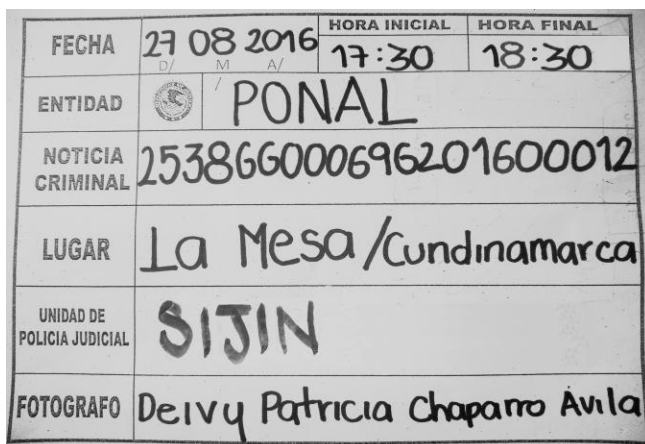 FECHA 27 08 2016 HORA INICIAL HORA FINAL
D/ M A/ 17:30 18:30
ENTIDAD PONAL
NOTICIA CRIMINAL 253866000696201600012
LUGAR La Mesa/Cundinamarca
UNIDAD DE POLICIA JUDICIAL SIJIN
FOTOGRAFO Deivy Patricia Chaparro Avila